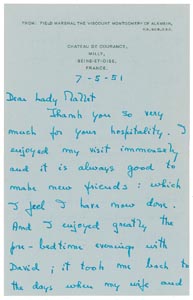 FROM: FIELD MARSHAL THE VISCOUNT MONTGOMERY OF ALAMEIN,
CHATEAU DE COURANCE,
MILLY,
SEINE-ET-OISE,
FRANCE.
7-5-51
Dear Lady Mallet
Thank you so very
much for your hospitality. I
enjoyed my visit immensely
and it is always good to
make new friends: which
I feel I have now done.
And I enjoyed greatly the
pre-bedtime evenings with
David; it took me back to
the days when my wife and